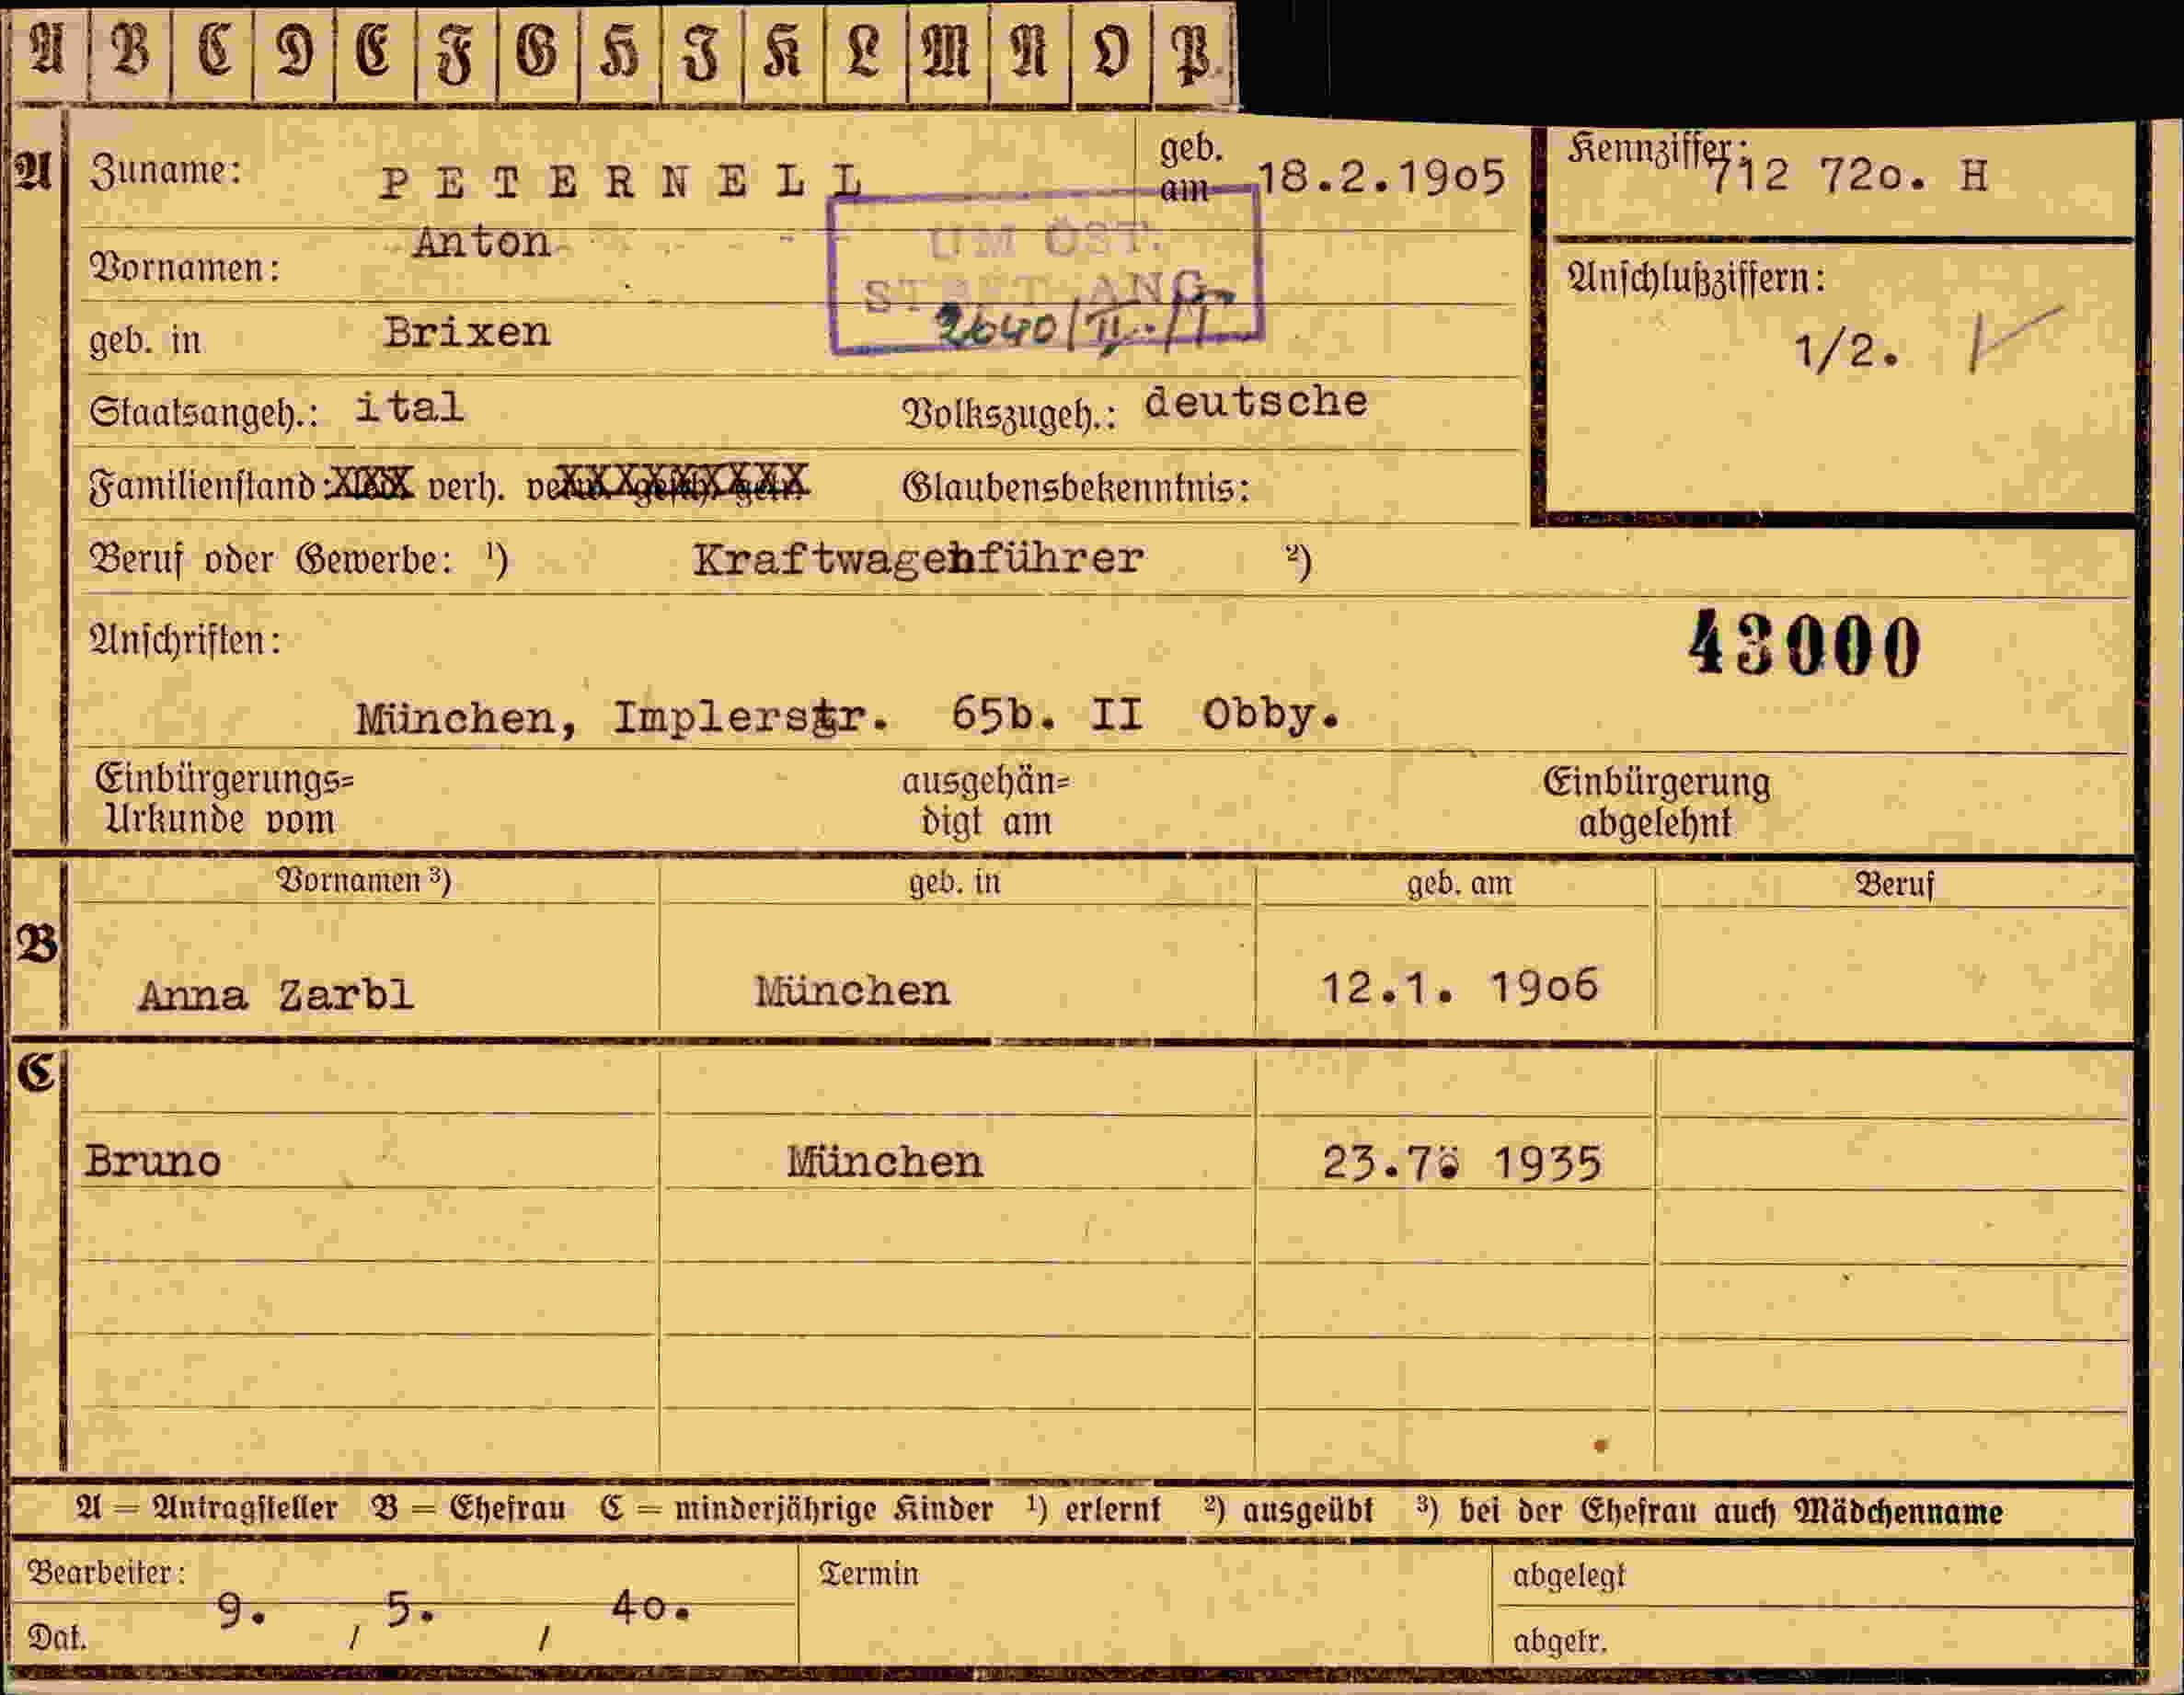 A B C D E F G H J K L M N O P
A Zuname: PETERNELL geb. am 18.2.1905 Kennziffer: 712 720. H
Vornamen: Anton
UM ÖST.
ST ANG
2640/II./1
geb. in Brixen
Anschlußziffern:
1/2.
Staatsangeh.: ital Volkszugeh.: deutsche
Familienstand: XXX verh. XXXXXXXXX Glaubensbekenntnis:
Beruf oder Gewerbe: ¹) Kraftwagenführer ²)
Anschriften:
43000
München, Implerstr. 65b. II Obby.
Einbürgerungs= ausgehän= Einbürgerung
Urkunde vom digt am abgelehnt
Vornamen ³) geb. in geb. am Beruf
B
Anna Zarbl München 12.1. 1906
C
Bruno München 23.7. 1935
A = Antragsteller B = Ehefrau C = minderjährige Kinder ¹) erlernt ²) ausgeübt ³) bei der Ehefrau auch Mädchenname
Bearbeiter: Termin abgelegt
Dat. 9. / 5. / 40. abgetr.